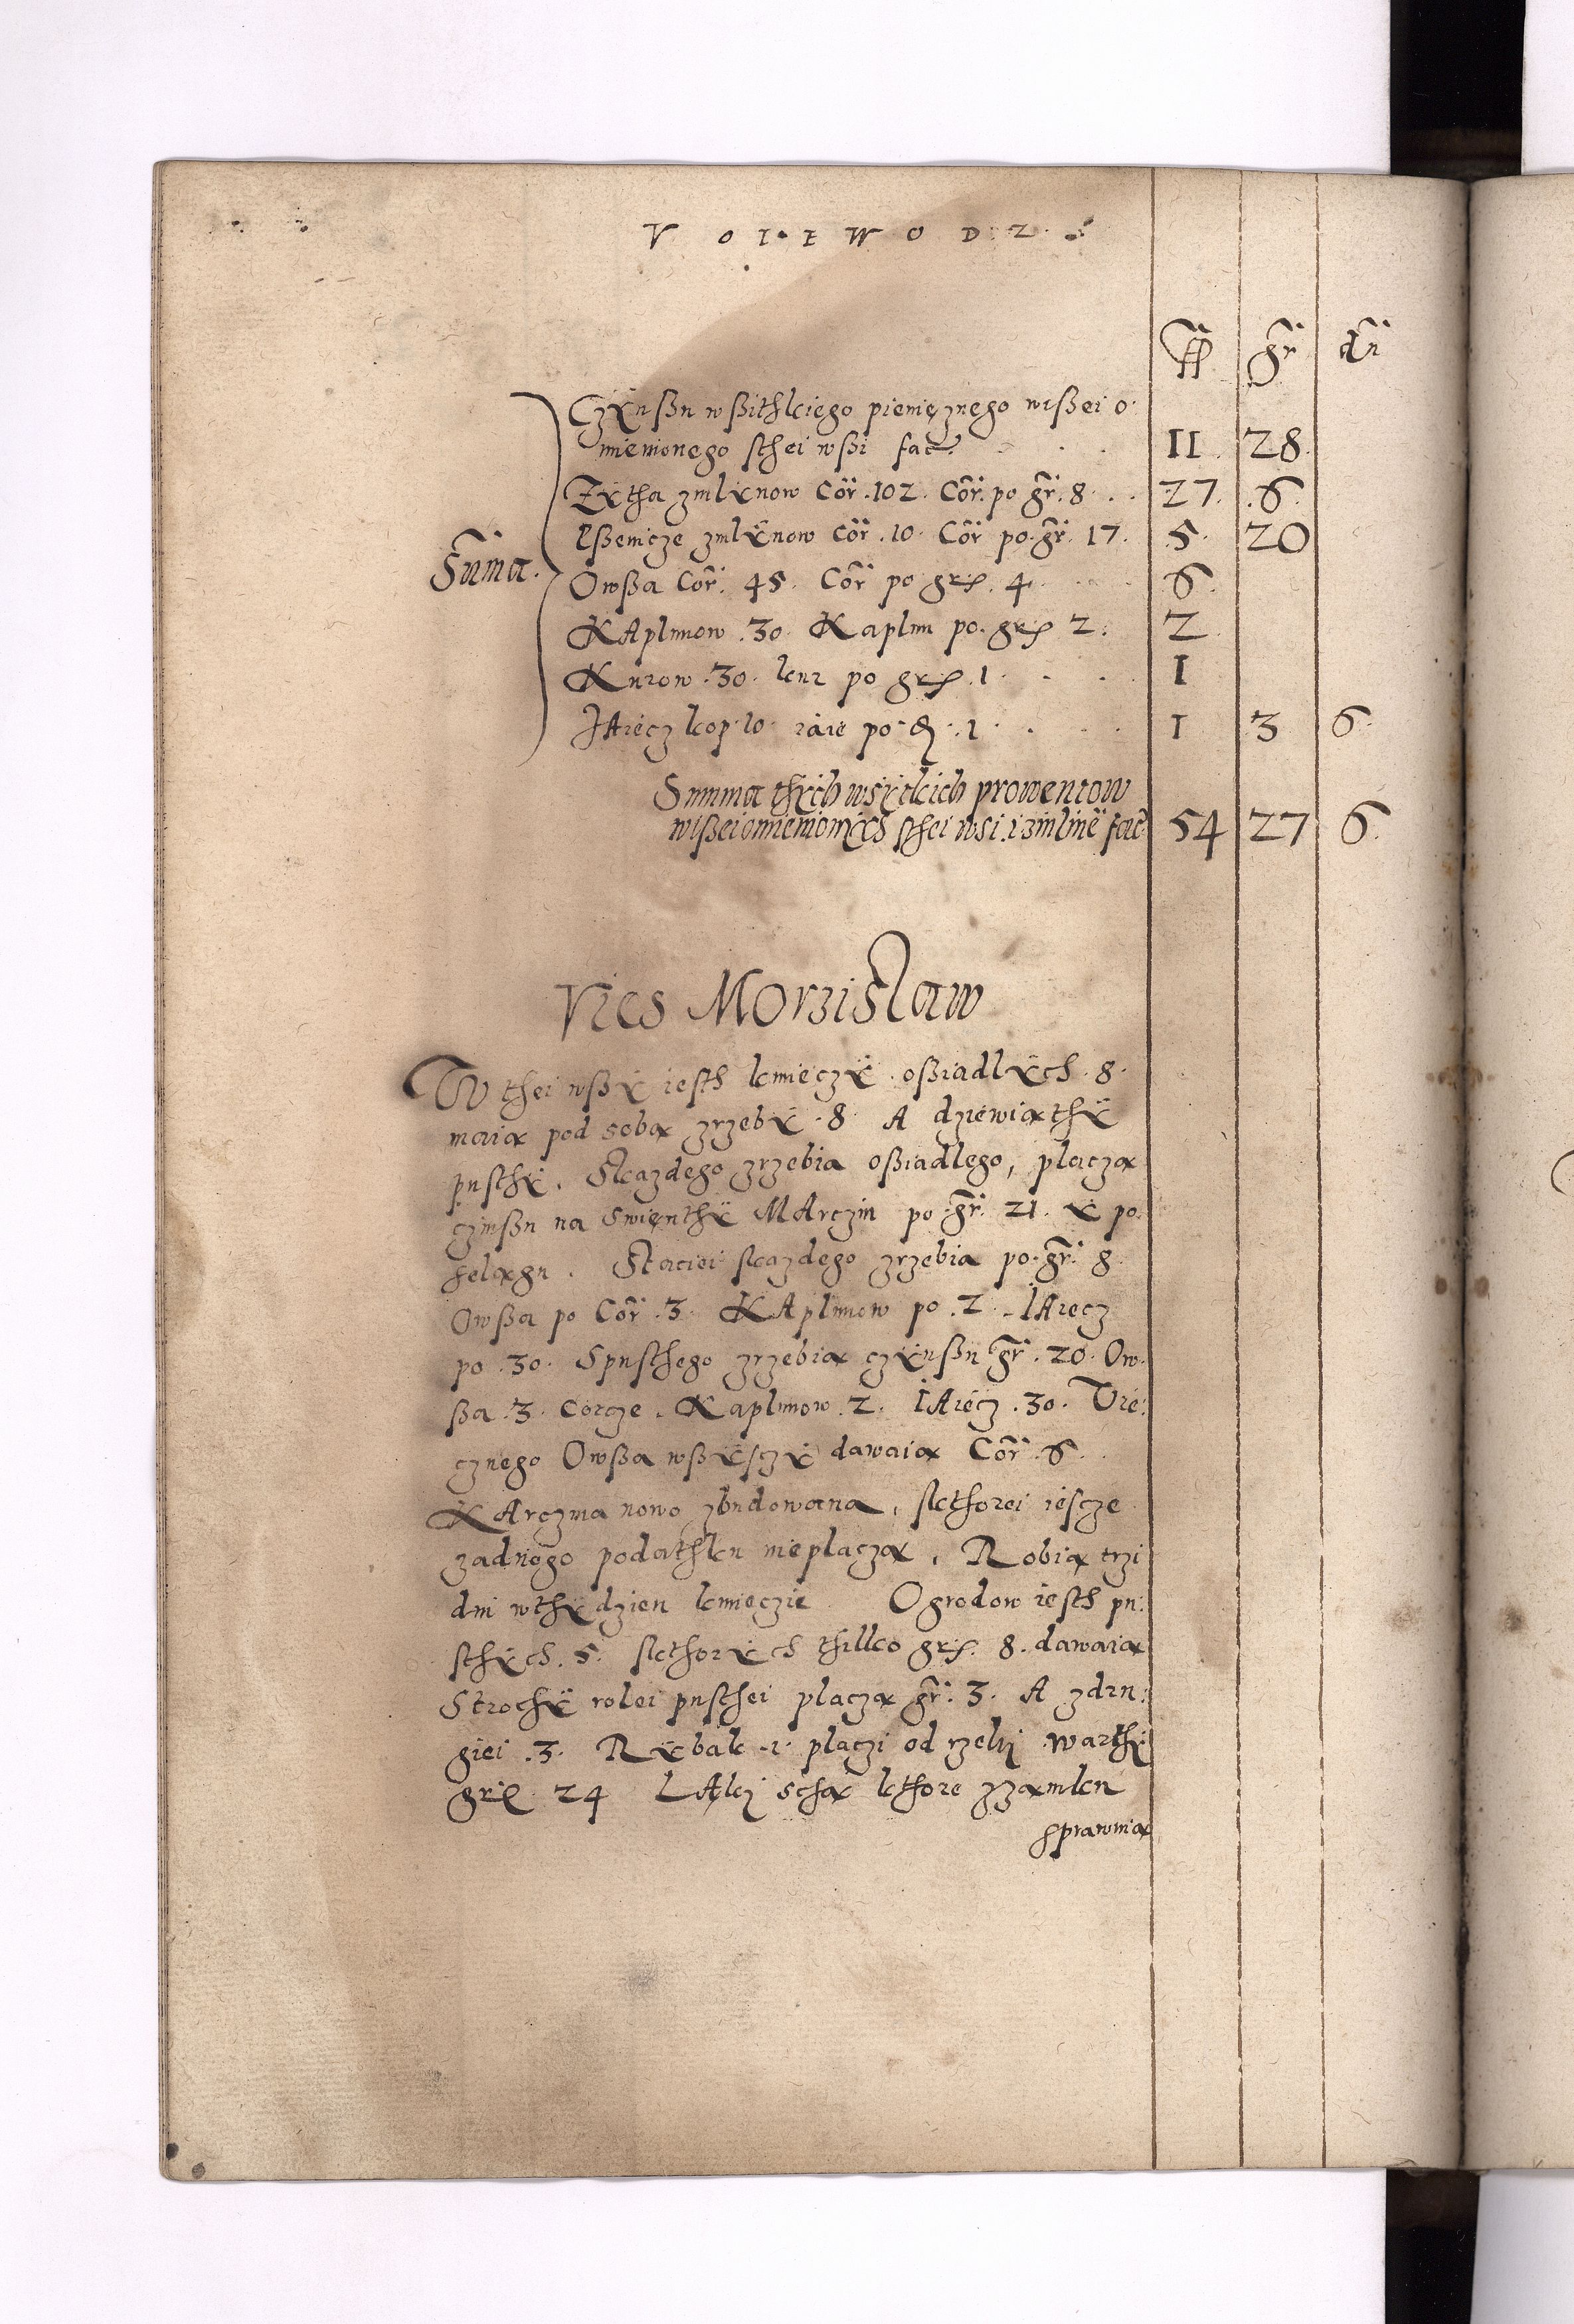 V O I E W O D Z.
fl gr dn
Czÿnßu wßithkiego pienięznego wißei o:
mienionego sthei wßi fac. II 28
Zÿtha zmlÿnow Cor. 102. Cor. po gr. 8. 27. 6.
Pßenicze zmlÿnow Cor. 10. Cor po. gr. 17. 5. 20
Suma. Owßa Cor. 45. Cor po grß. 4. 6.
KApłunow. 30. Kapłun po. grß 2. 2
Kurow. 30. kur po grß. 1. I
JAiecz kop. 10. iaie po. 1. I 3 6.
Summa thÿch wsÿtkich prowentow
wißei omienionÿch sthei wsi. i zmlinÿ fac 54 27 6.
Vies Morzislaw
W thei wßÿ iesth kmieczÿ. oßiadlÿch. 8.
maią pod sobą zrzebÿ. 8 A dziewiąthÿ
pusthÿ. Skazdego zrzebia oßiadlego, placzą
czinßu na Swięnthÿ MArczin po. gr. 21. ÿ po
helągu. Staciei skazdego zrzebia po. gr. 8.
Owßa po Cor. 3. KApłunow po. 2. JAiecz
po. 30. Spusthego zrzebią czÿnßu gr. 20. Ow:
ßa. 3. Corcze. Kapłunow. 2. JAiecz. 30. Vie:
cznego Owßa wßÿsczÿ dawaią Cor. 6.
KArczma nowo zbudowana, skthorei iescze
zadnego podathku nieplaczą. Robią trzi
dni wthÿdzien kmieczie. Ogrodow iesth pu:
sthÿch. 5. skthorÿch thilko grß. 8. dawaią
Strochÿ rolei pusthei placzą gr. 3. A zdru:
giei. 3. Rÿbak. 1. placzi od rzeki Warthÿ
grß 24 LAki sthą kthore zzamku
sprawnią